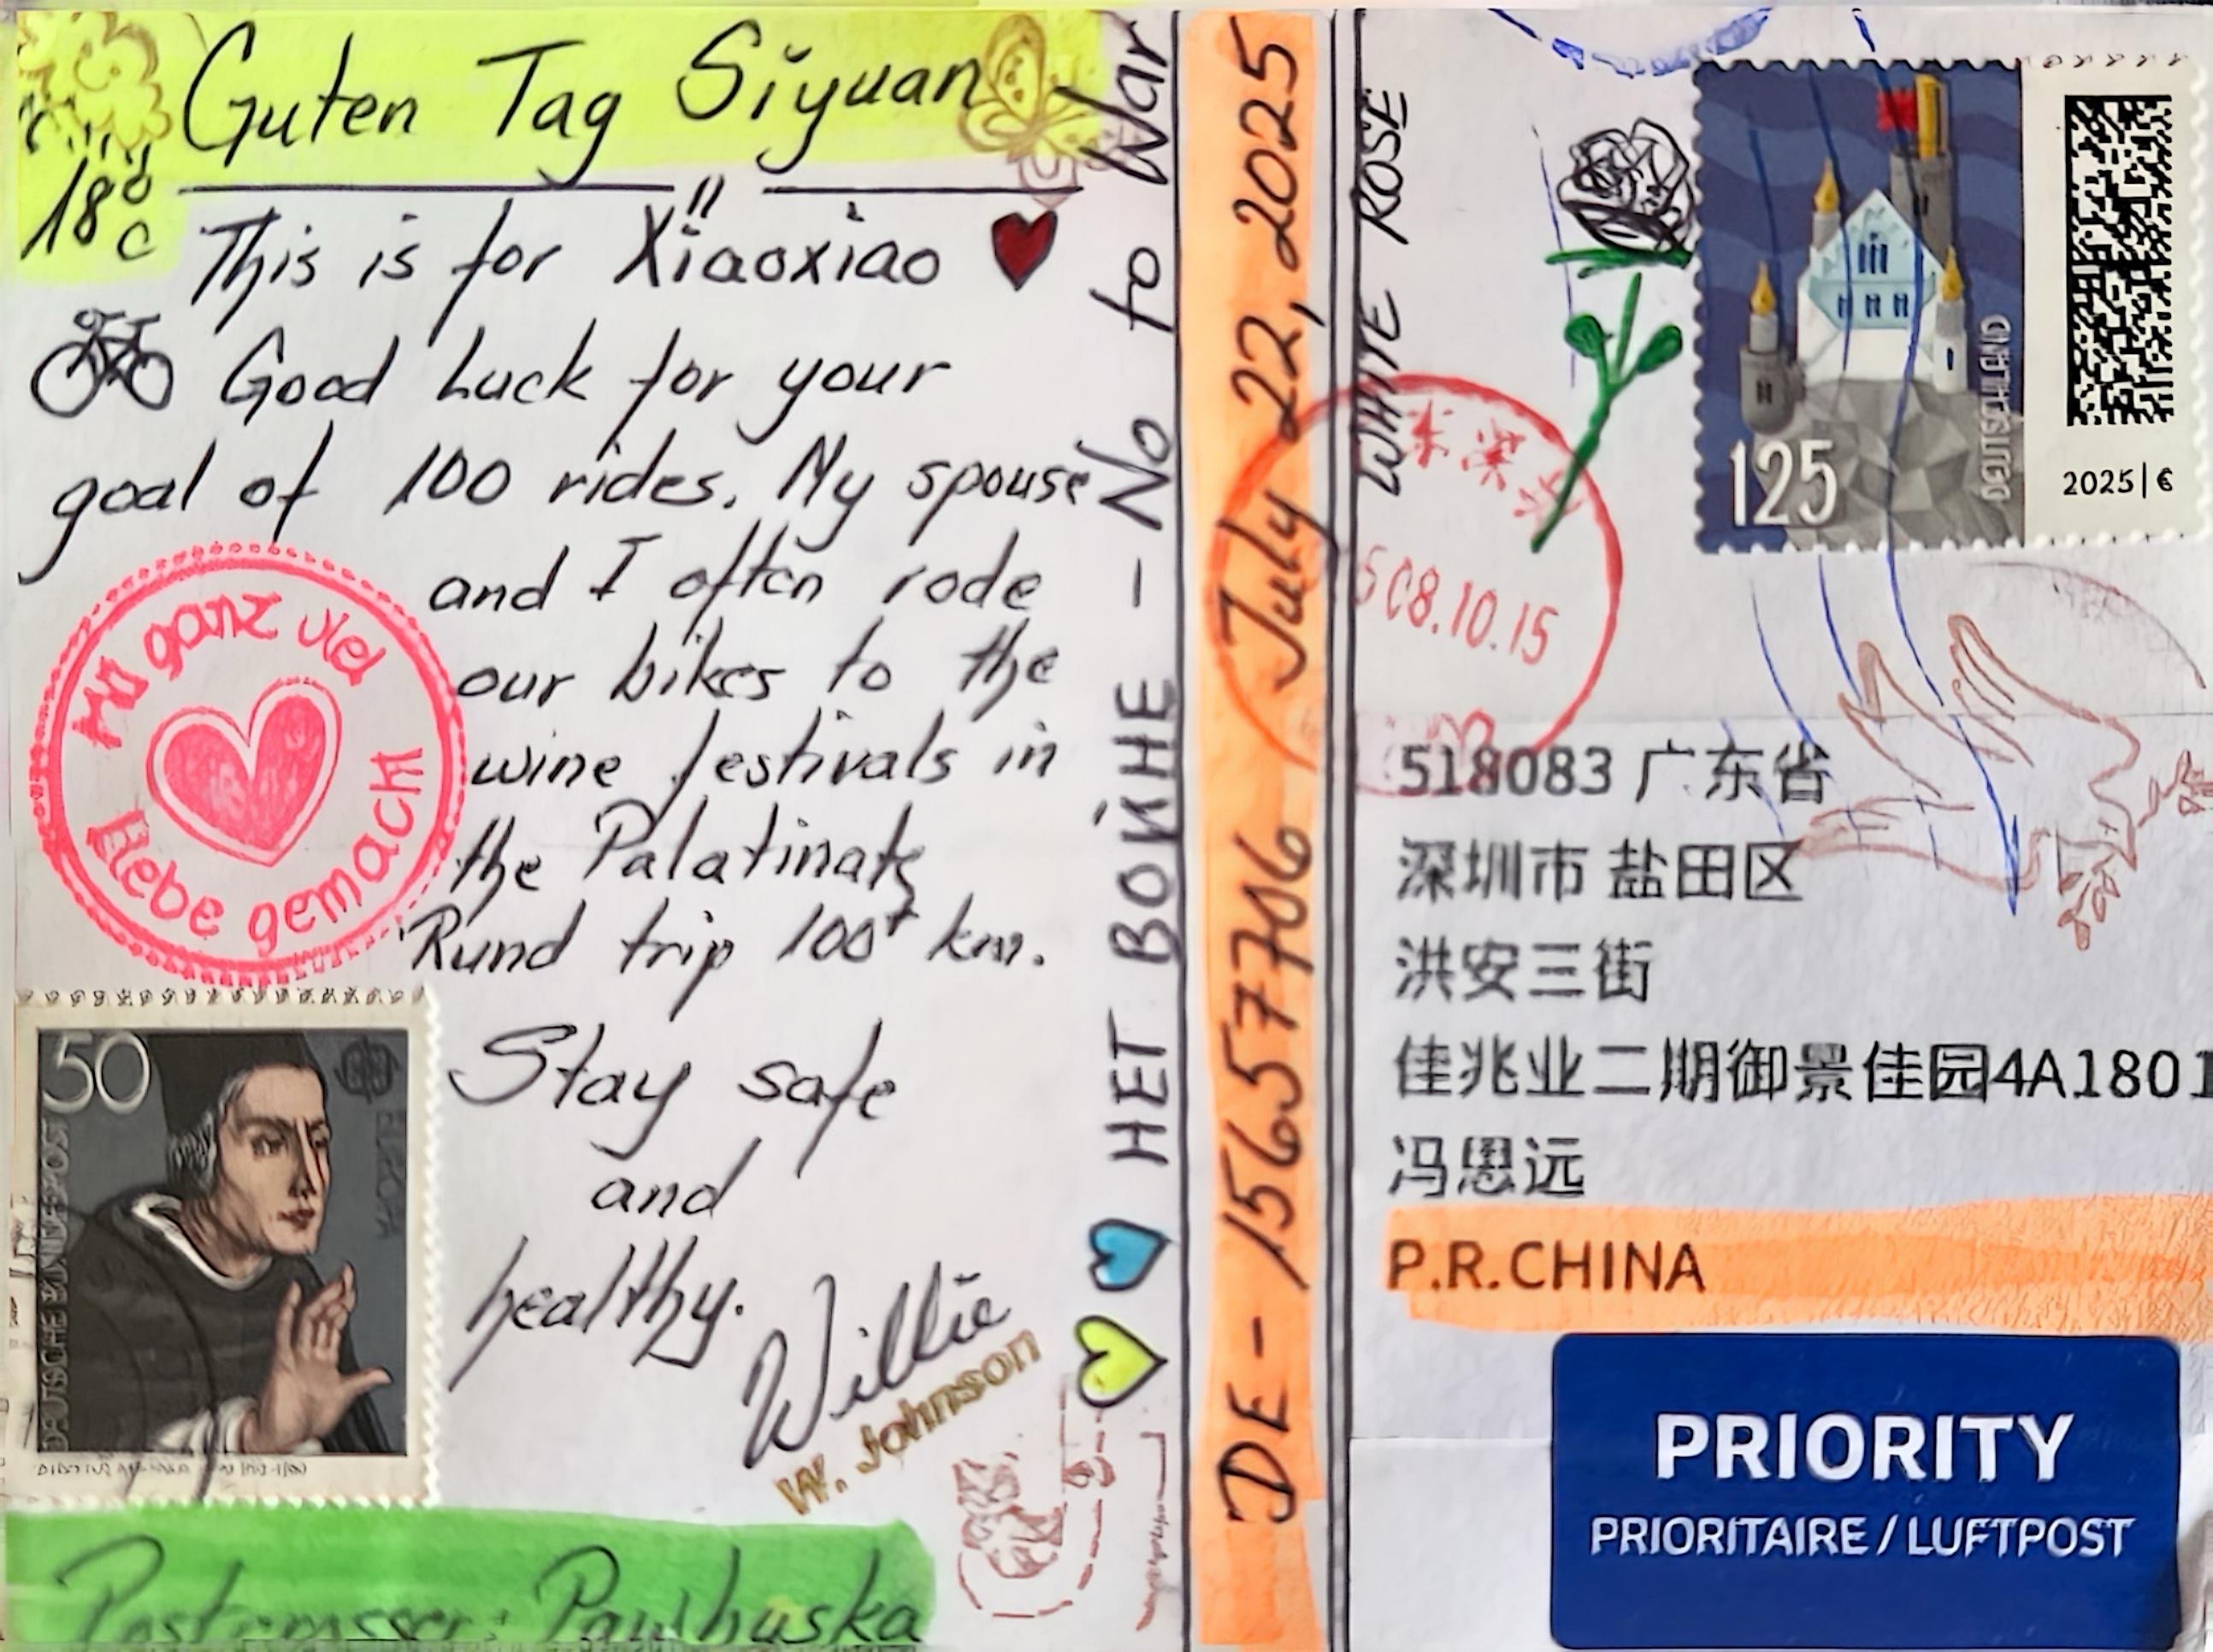 Guten Tag Siyuan
18°C
This is for Xiaoxiao
Good Luck for your
goal of 100 rides. My spouse
and I often rode
our bikes to the
wine festivals in
the Palatinate
Rund trip 100+ km.
Stay safe
and
healthy.
Willie
W. Johnson
Mit ganz viel
Liebe gemacht
50
DEUTSCHE BUNDESPOST
EUROPA
Postcrosser: Pawhuska
НЕТ ВОЙНЕ - No to War
DE-15657706 July 22, 2025
WHITE ROSE
125
DEUTSCHLAND
2025|€
08.10.15
518083 广东省
深圳市 盐田区
洪安三街
佳兆业二期御景佳园4A1801
冯思远
P.R.CHINA
PRIORITY
PRIORITAIRE / LUFTPOST